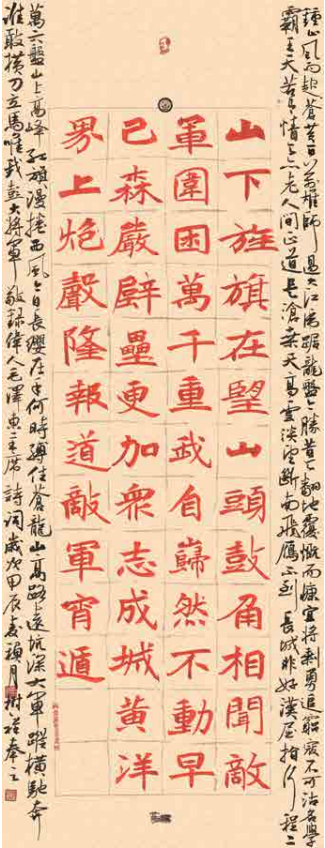 鍾山風雨起蒼黃百萬雄師過大江虎踞龍盤今勝昔天翻地覆慨而慷宜將剩勇追窮寇不可沽名學
霸王天若有情天亦老人間正道是滄桑天高雲淡望斷南飛雁不到長城非好漢屈指行程二
山下旌旗在望山頭鼓角相聞敵
軍圍困萬千重我自巋然不動早
已森嚴壁壘更加衆志成城黃洋
界上炮聲隆報道敵軍宵遁
萬六盤山上高峰紅旗漫捲西風今日長纓在手何時縛住蒼龍山高路遠坑深大軍縱橫馳奔
誰敢橫刀立馬唯我彭大將軍敬錄偉人毛澤東主席詩詞歲次甲辰春月樹祥奉之